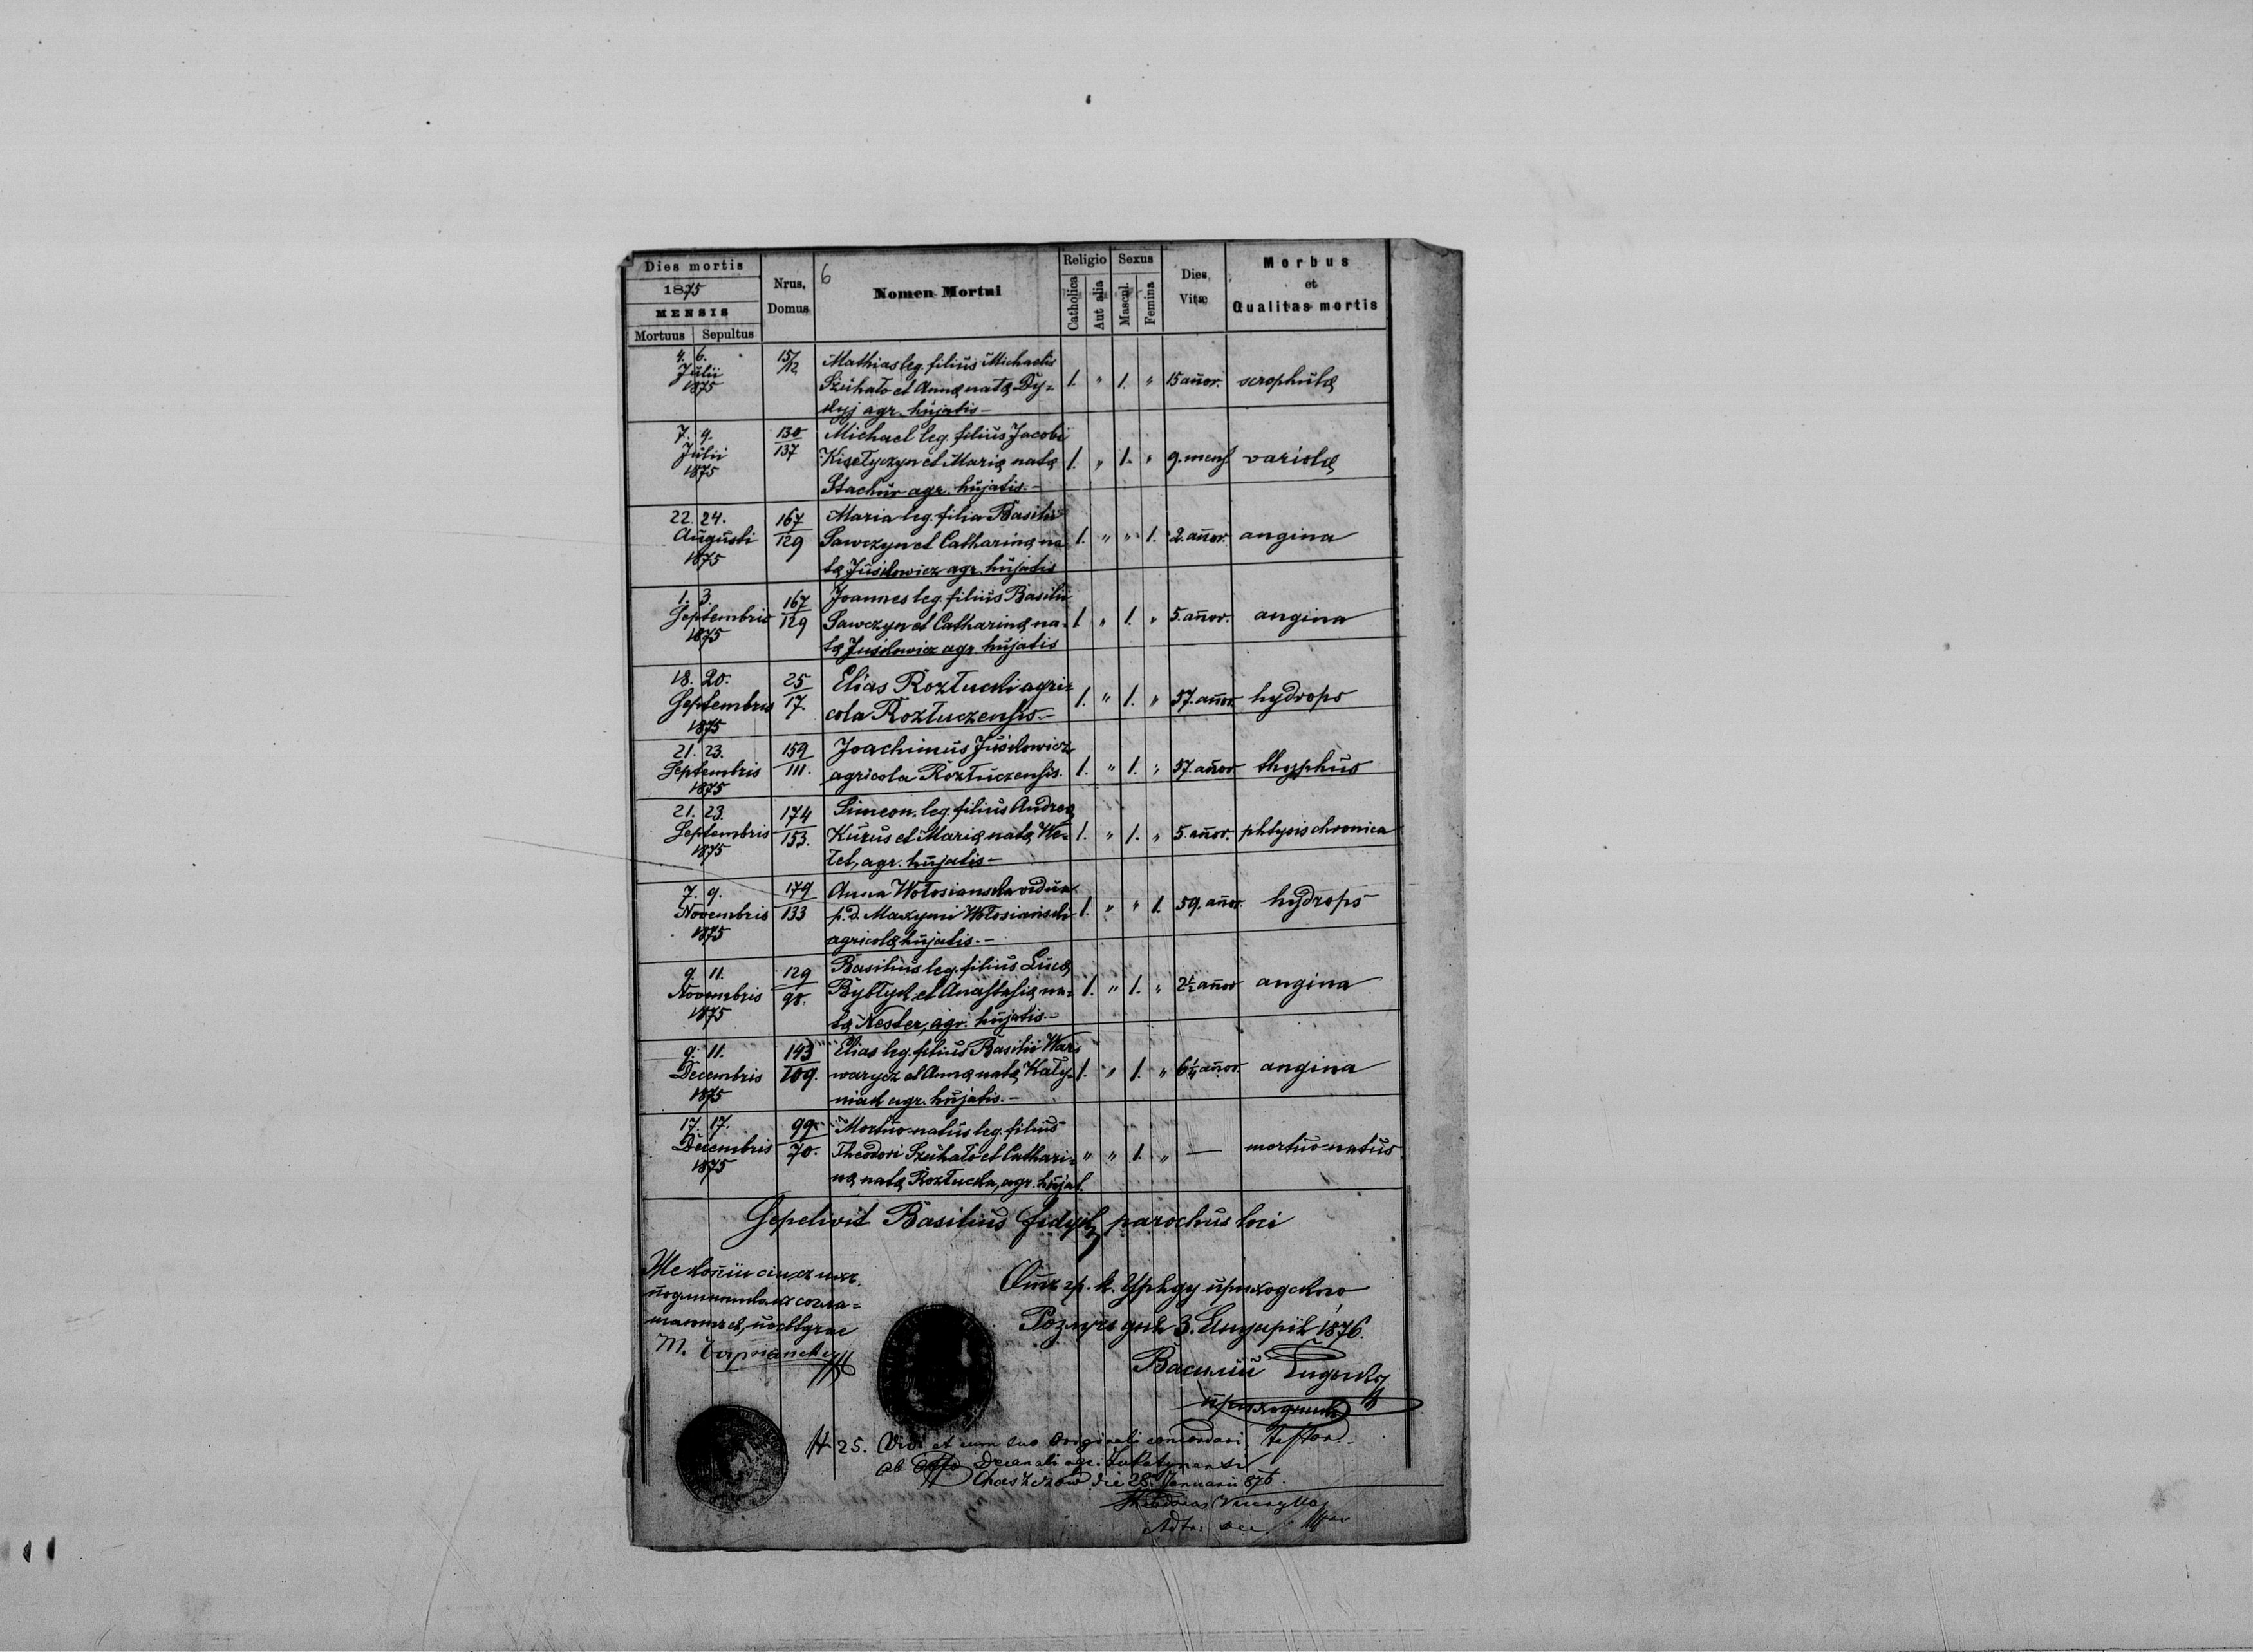 Dies mortis
1875
MENSIS
Mortuus Sepultus
Nrus. Domus
6
Nomen Mortui
Religio Sexus
Catholica Aut alia Mascul. Femina
Dies Vitæ
Morbus
et
Qualitas mortis
4. 6. Julii 1875
15/12
Mathias leg. filius Michaelis
Szuhało et Annæ natæ Dy=
dyj agr. hujatis –
1. " 1. " 15 añor. scrophulæ
7. 9. Julii 1875
130/137
Michael leg. filius Jacobi
Kisełyczyn et Mariæ natæ
Stachur agr. hujatis. –
1. " 1. " 9. mens. variolæ
22. 24. Augusti 1875
167/129
Maria leg. filia Basilii
Sawczyn et Catharinæ na
tæ Jusikowicz agr. hujatis
1. " " 1. 2. añor. angina
1. 3. Septembris 1875
167/129
Joannes leg. filius Basilii
Sawczyn et Catharinæ na-
tæ Jusikowicz agr. hujatis
1. " 1. " 5. añor. angina
18. 20. Septembris 1875
25/17.
Elias Rozłucki agri=
cola Rozłuczensis. –
1. " 1. " 57. añor. hydrops
21. 23. Septembris 1875
159/111.
Joachimus Jusikowicz
agricola Rozłuczensis.
1. " 1. " 57. añor thyphus
21. 23. Septembris 1875
174/153.
Simeon. leg. filius Andreæ
Kurus et Mariæ natæ We=
łet, agr. hujatis –
1. " 1. " 5. añor. phtysis chronica
7. 9. Novembris 1875
179/133
Anna Wołosianska vidua
p. d. Maxymi Wołosianski
agricolæ hujatis. –
1. " " 1. 59. añor. hydrops
9. 11. Novembris 1875
129/98.
Basilius leg. filius Lucæ
Bybłyk et Anastasiæ na=
tæ Nester, agr. hujatis. –
1. " 1. " 2½ añor angina
9. 11. Decembris 1875
143/109.
Elias leg. filius Basilii War
warycz et Annæ natæ Kały-
niak agr. hujatis. –
1. " 1. " 6¼ añor. angina
17. 17. Decembris 1875
99/70.
Mortuo-natus leg. filius
Theodori Szuhało et Cathari=
næ natæ Rozłucka, agr. hujat.
" " 1. " — mortuo-natus
Sepelivit Basilius parochus loci
Отъ гр. к. Уряду приходского
Розлучь дня 3. Януарія 1876.
Василій
приходникъ
№ 25. Vidi et cum suo Originali concordari testor.
ab Offo Decanali
die 28. Januarii 876.
Theodorus